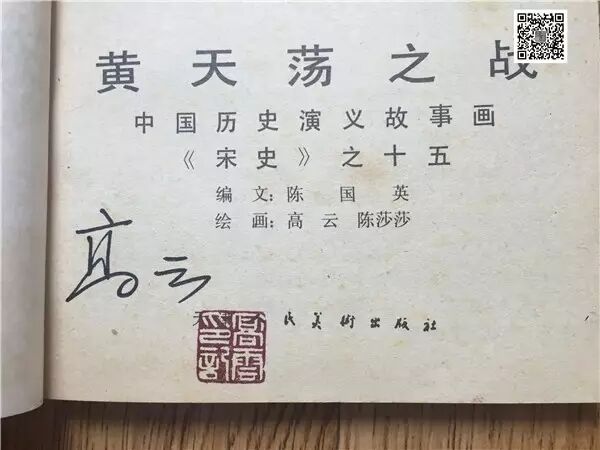 黄天荡之战
中国历史演义故事画
《宋史》之十五
编 文：陈 国 英
绘 画：高 云 陈莎莎
高云
民美術出版社
高雲印記